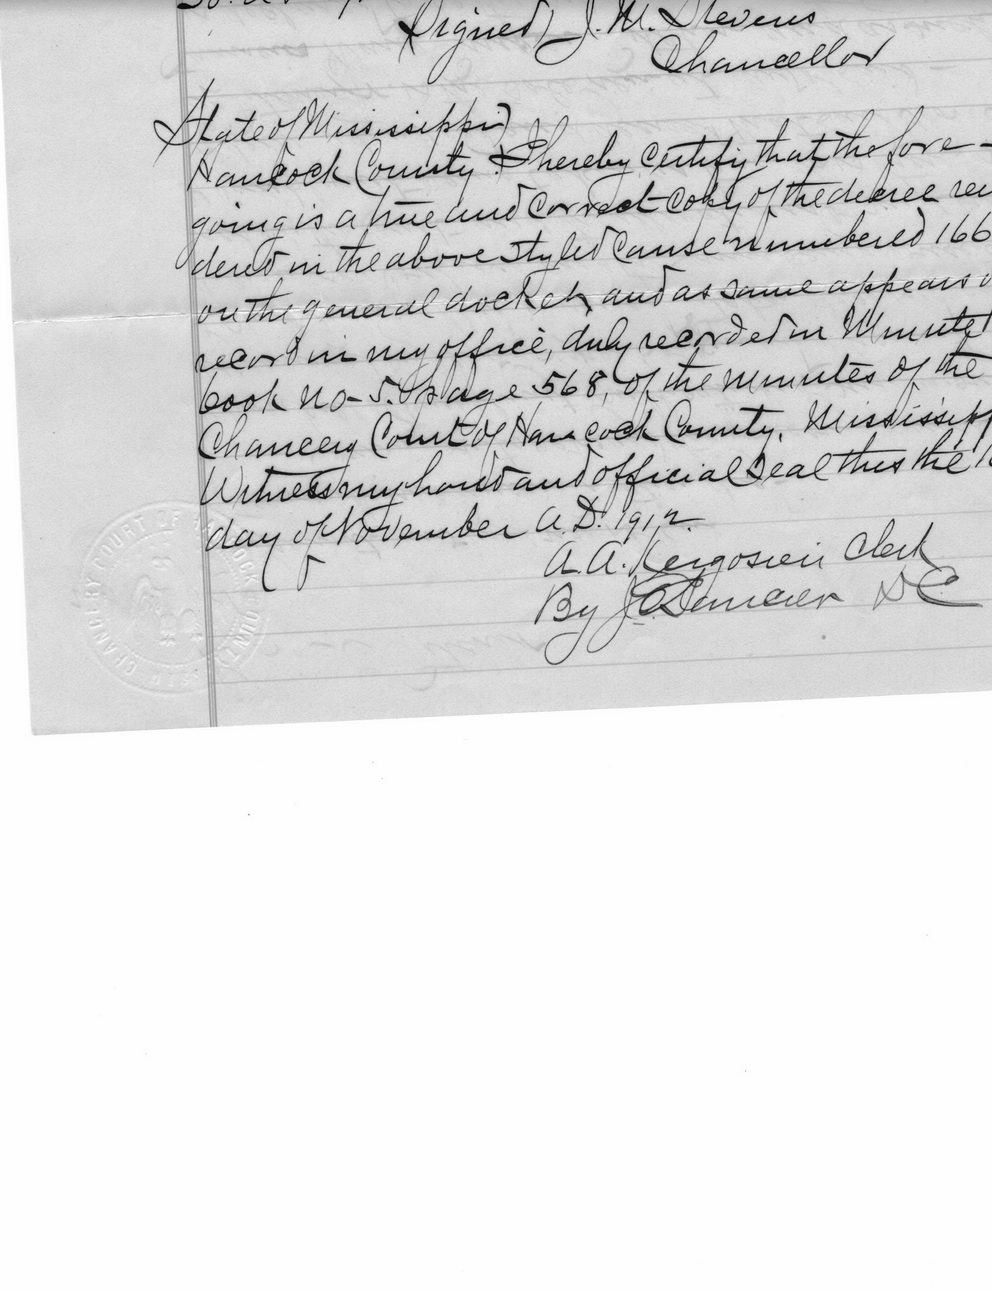 Signed J. M. Stevens
Chancellor
State of Mississippi
Hancock County. I hereby certify that the fore-
going is a true and correct copy of the decree ren
dered in the above styled cause numbered 166
on the general docket, and as same appears o
record in my office, duly recorded in Minute
book no 5. page 568, of the minutes of the
Chancery Court of Hancock County, Mississipp
Witness my hand and official seal this the 1
day of November A.D. 1912.
A. A. Kergosien Clerk
By J. DC
CHANCERY COURT OF HANCOCK COUNTY